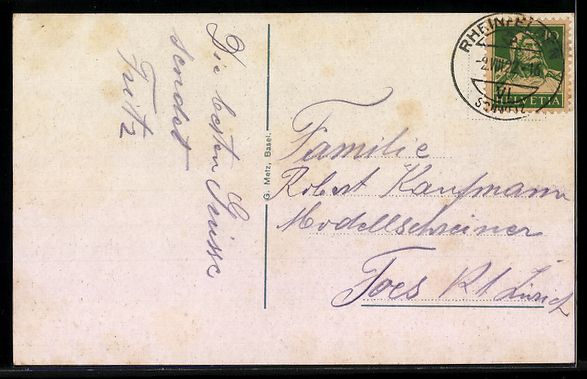 Die besten Grüsse
sendet
Fritz
G. Metz, Basel.
10
HELVETIA
RHEINFELDEN
VI
Familie
Robert Kaufmann
Modellschreiner
Toess Kt. Zürich